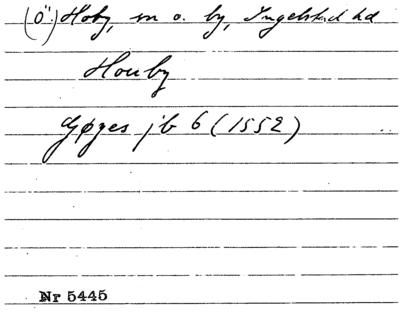 (Ö.) Hoby, sn o. by, Ingelstad hd
Houby
Gøges jb 6 (1552)
Nr 5445